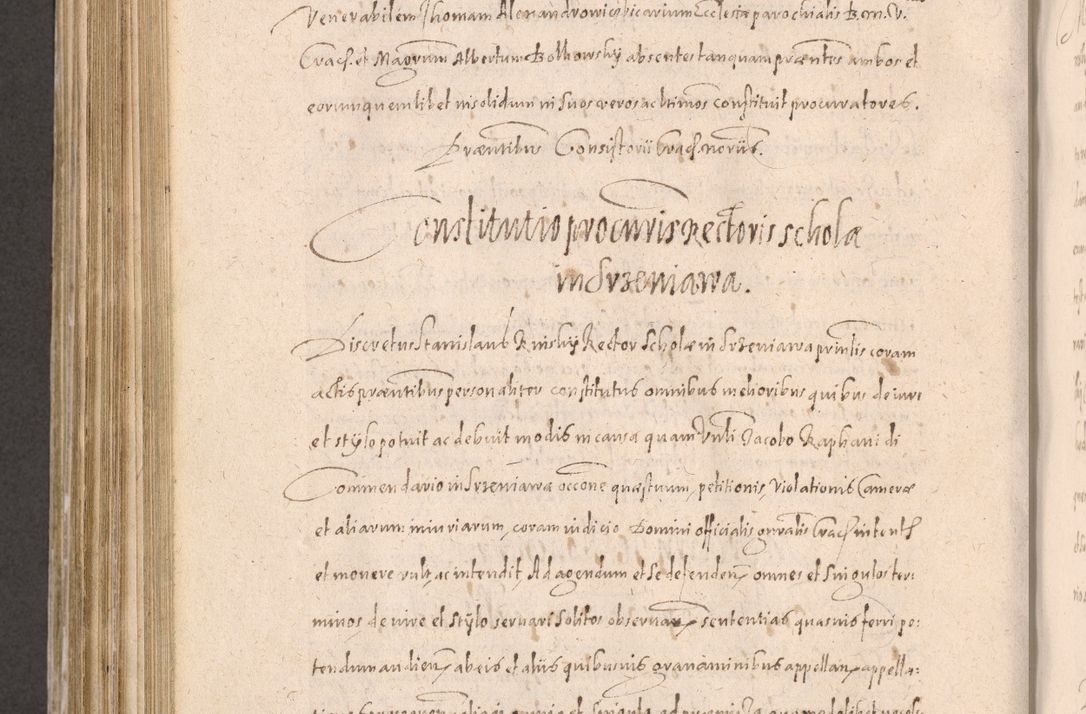 Venerabilem Thomam Alexandrowic vicarium Ecclesiæ parochialis B. m. V.
Crac. et Magrum Albertum Bolhowsky absentes tanquam præntes ambos et
eorum quemlibet insolidum in suos veros ac ltimos constituit procuratores.
Præntibus Consistorii Crac. noriis.
Constitutio procuris Rectoris scholæ
in Srzeniawa.
Discretus Stanislaus Rinsky Rector Scholæ in Srzeniawa printis coram
actis præntibus personaliter constitutus omnibus melioribus quibus de iure
et stylo potuit ac debuit modis in causa quam Vnli Jacobo Raphani di
Commendario in Srzeniawa occone quæstuum, petitionis, Violationis Cameræ
et aliarum iniuriarum, coram iudicio Domini officialis gnralis Crac. intent
et monere vult, ac intendit, Ad agendum et se defenden, omnes et singulos ter:
minos de iure et stylo servari solitos observan, sententias quasuis ferri pe:
tendum audien, ab eis et aliis quibusuis grauaminibus appellan, appella: